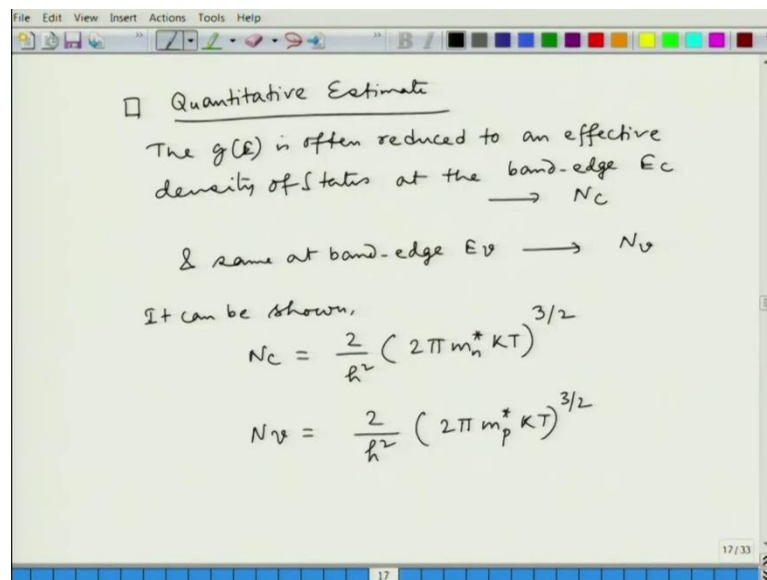 File Edit View Insert Actions Tools Help
B I
□ Quantitative Estimate
The g(E) is often reduced to an effective
density of States at the band-edge Ec
→ Nc
& same at band-edge Ev → Nv
It can be shown,
Nc = 2/h² (2π m*n KT)^3/2
Nv = 2/h² (2π m*p KT)^3/2
17/33
17